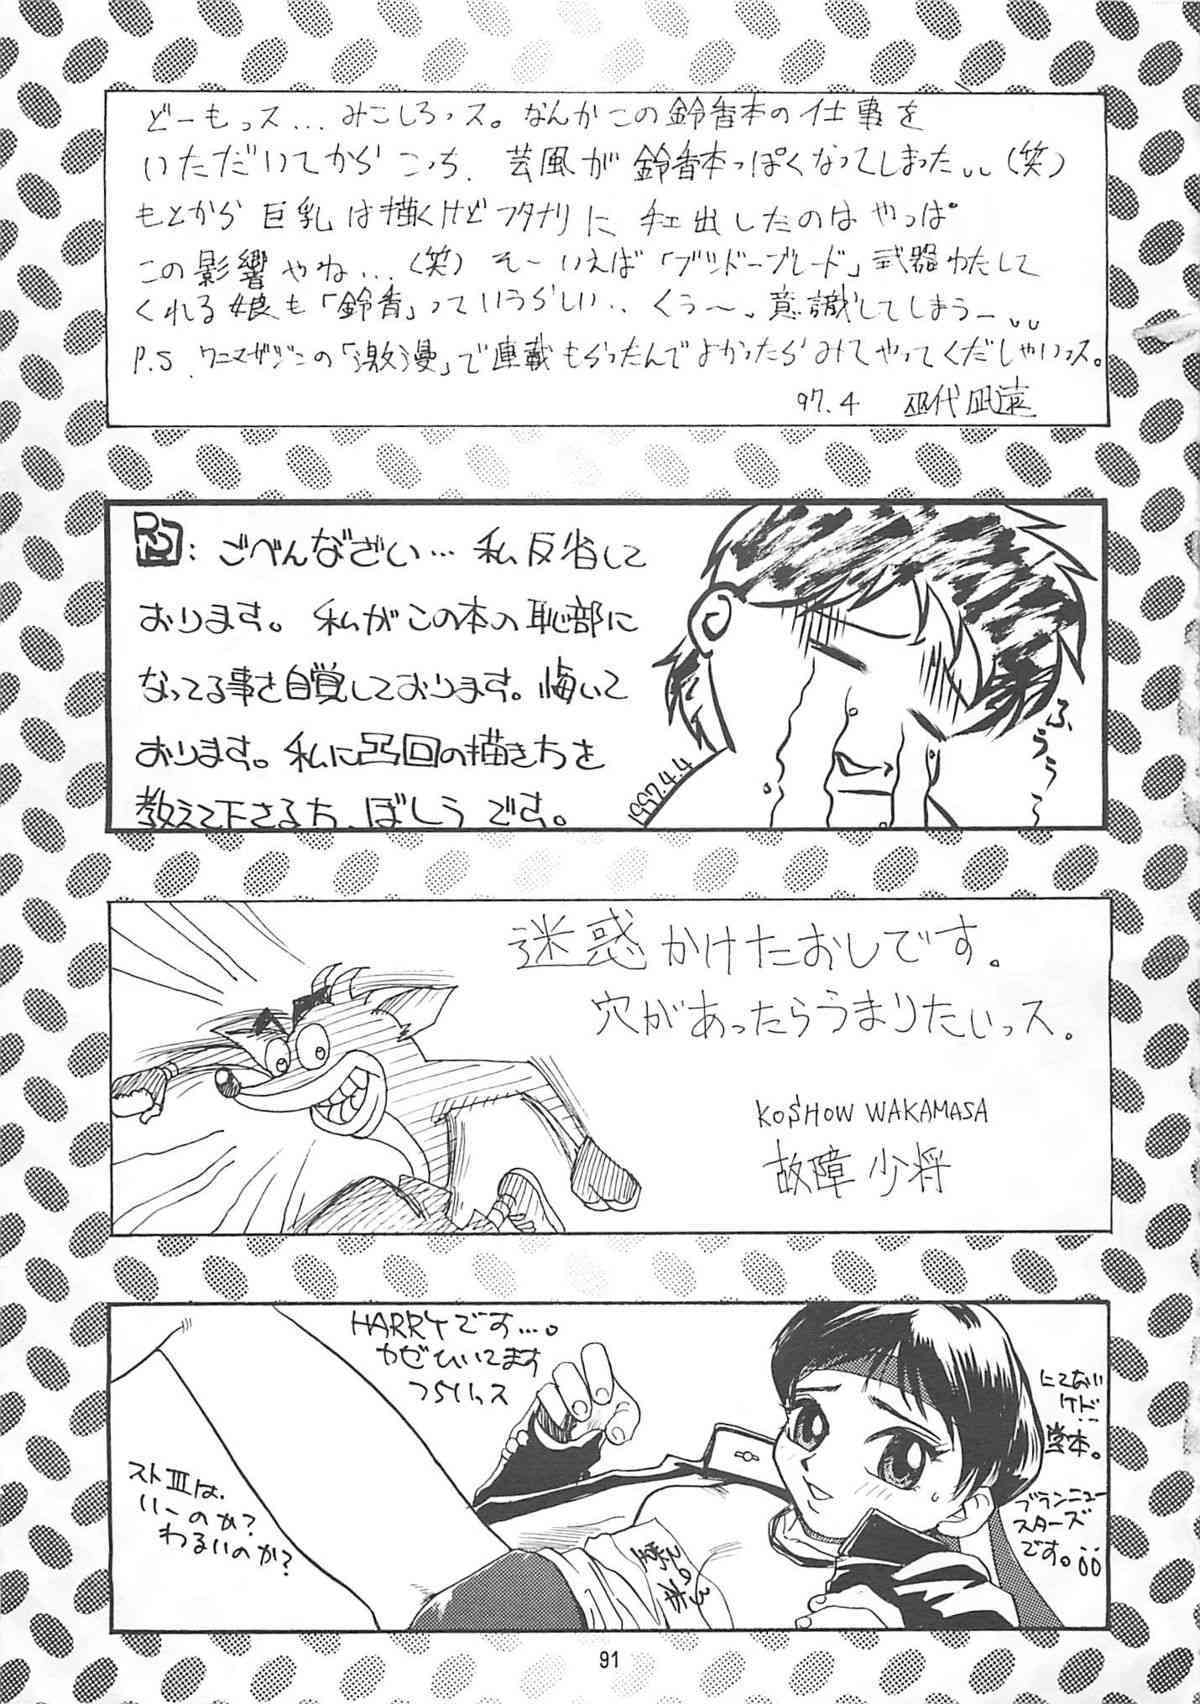 どーもっス…みこしろっス。なんかこの鈴香本の仕事を
いただいてからこっち、芸風が鈴香本っぽくなってしまった…(笑)
もとから巨乳は描くけどフタナリにチェ出したのはやっぱ
この影響やね…(笑)そーいえば「ブシドーブレード」武器わたして
くれる娘も「鈴香」っていうらしい‥くぅ〜、意識してしまうー…
P.S ワニマガジンの「激漫」で連載もらったんでよかったらみてやってくだしゃいっス。
97.4 巫代凪遠
:ごべんなざい…私反省して
おります。私がこの本の恥部に
なってる事を自覚しております。悔いて
おります。私に凸凹の描き方を
教えて下さる方、ぼしうです。
1997.4.4
ふううう
迷惑かけたおしです。
穴があったらうまりたいっス。
KOSHOW WAKAMASA
故障少将
HARRYです…。
カゼひいてます
つらいっス
にてない
けど…
堂本。
ブランニュー
スターズ
です。
ストⅢは、
いーのか?
わるいのか?
堂本
91